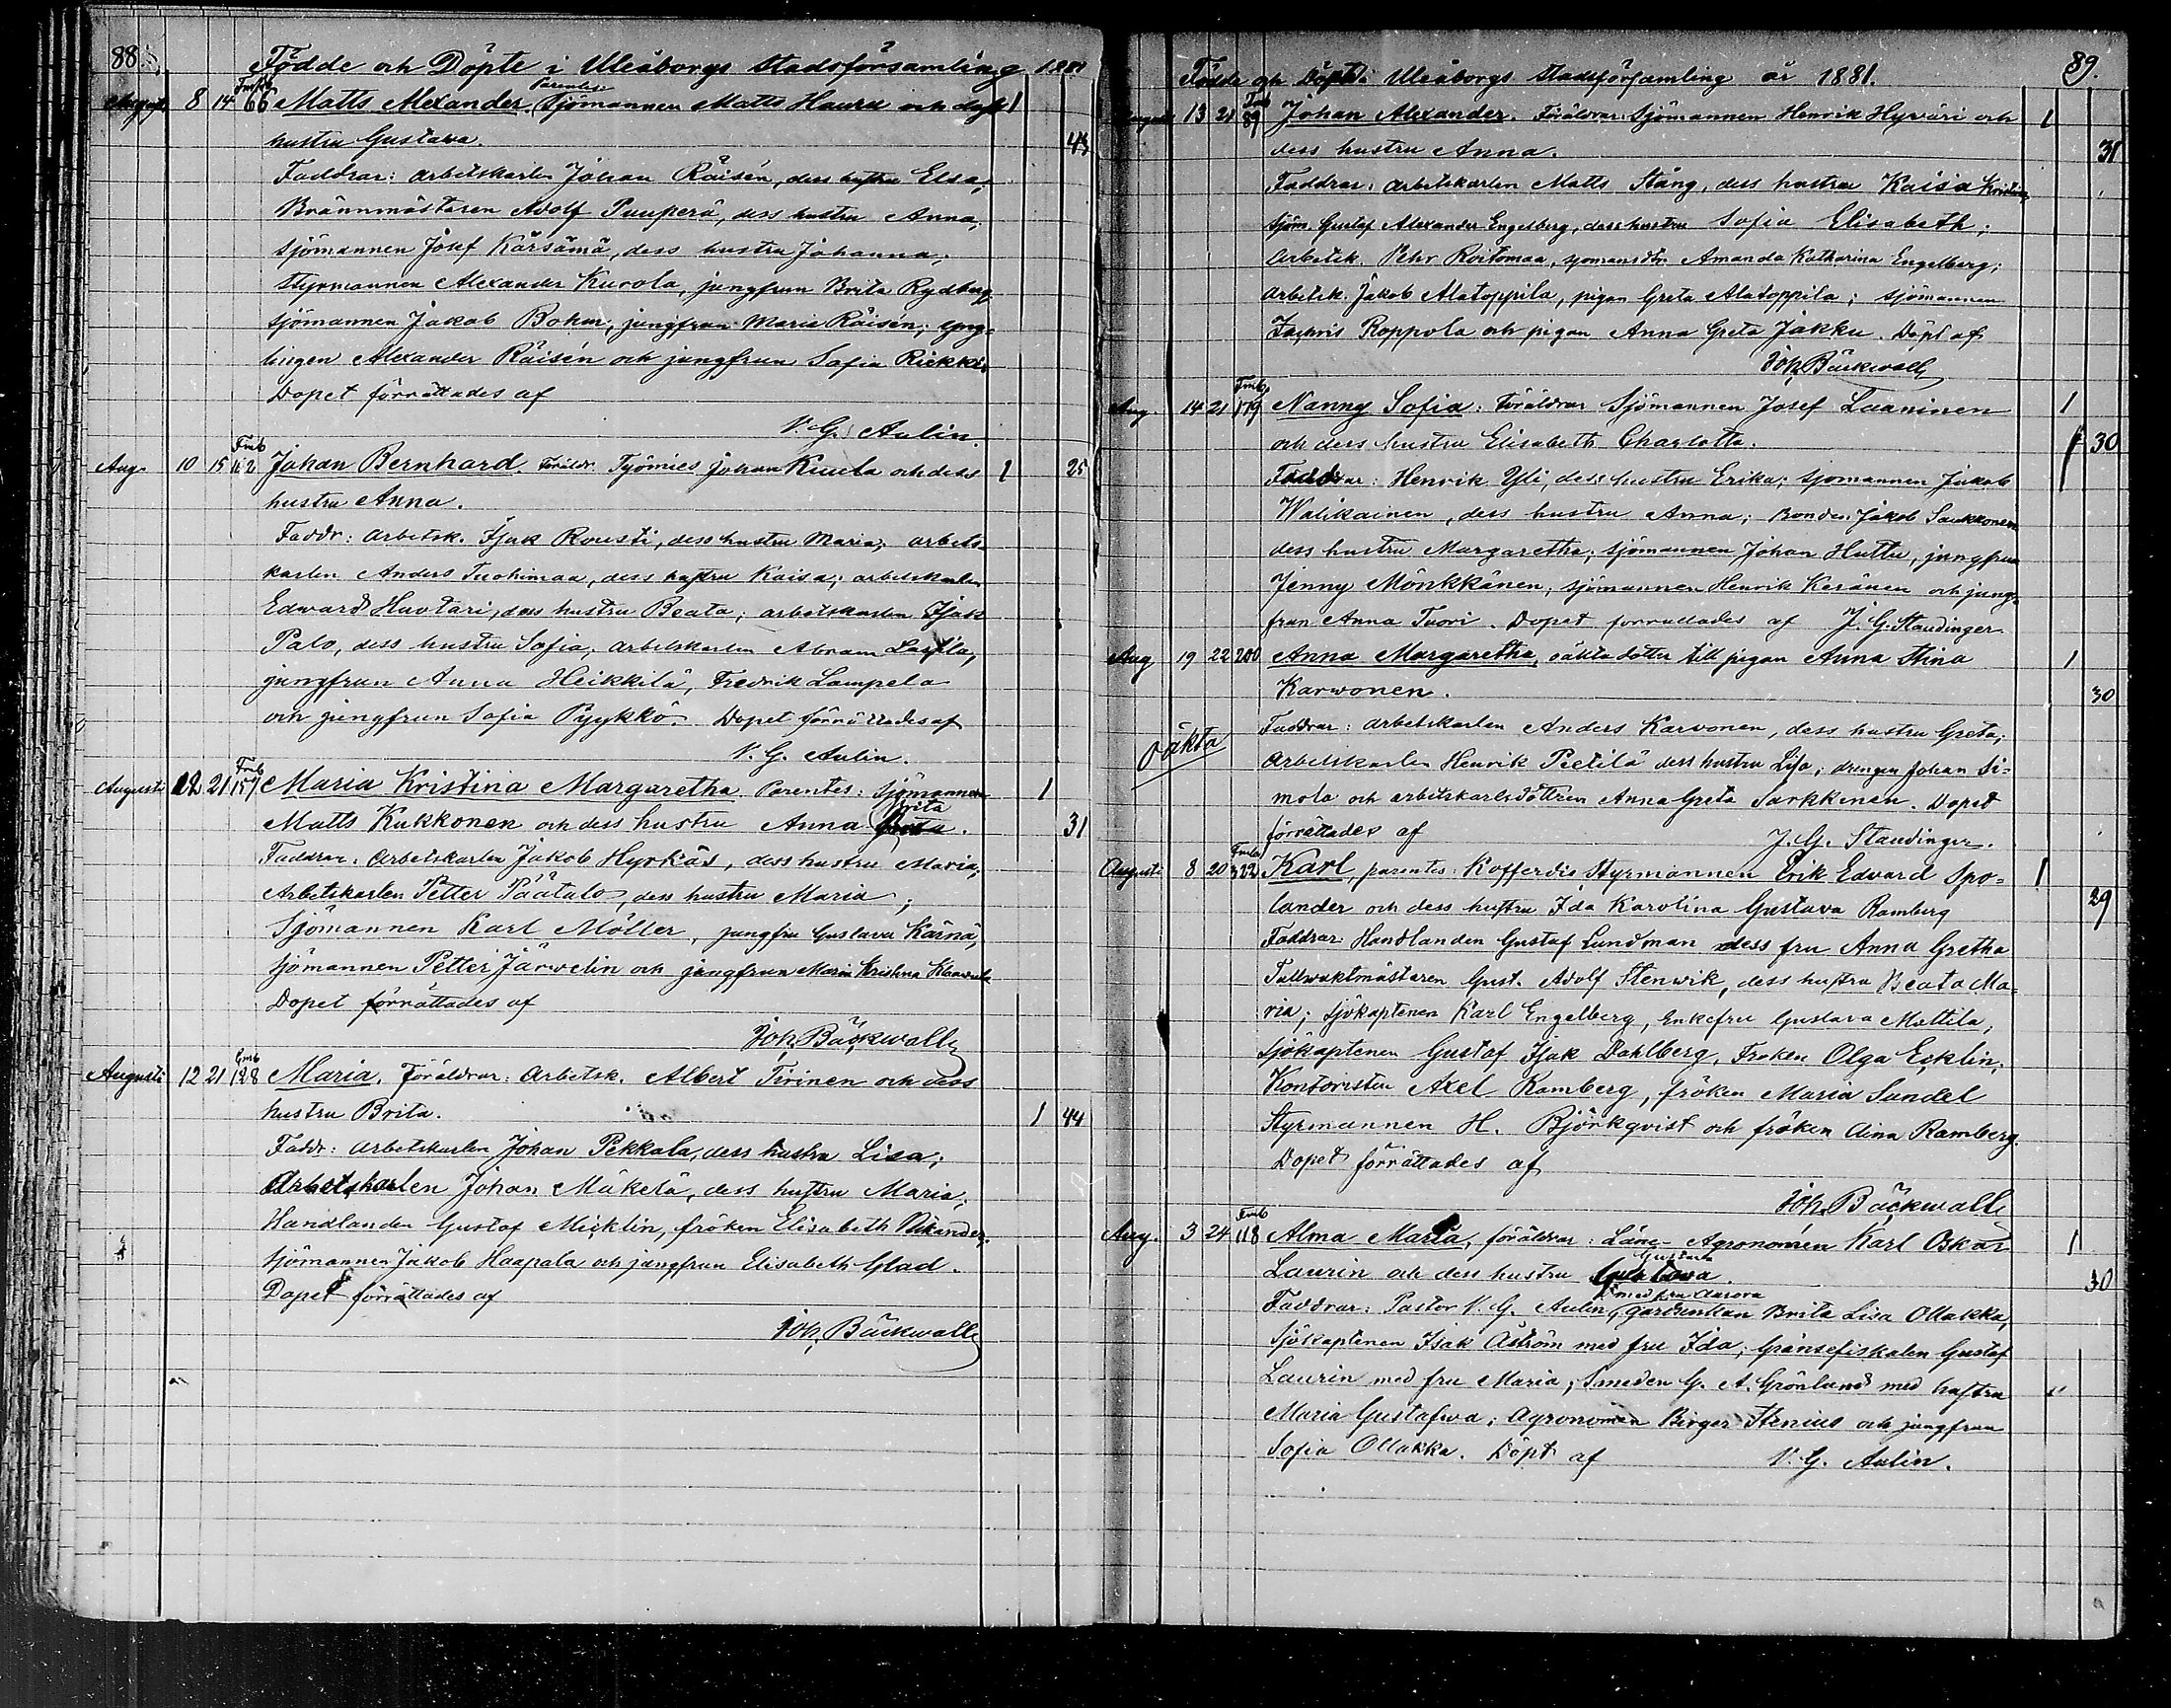 88.
Födde och Döpte i Uleåborgs Stadsförsamling 1881
Augusti 8 14 66 Matts Alexander. Parentes Sjömannen Matts Hauru och dess 1
hustru Gustava. 43
Faddrar: arbetskarlen Johan Räisén, dess hustru Elsa;
Brännmästaren Adolf Puuperä, dess hustru Anna;
sjömannen Josef Kärsämä, dess hustru Johanna;
styrmannen Alexander Kurola, jungfrun Brita Rydberg
sjömannen Jakob Bohm, jungfrun Maria Räisén; yng-
lingen Alexander Räisén och jungfrun Sofia Riekki.
Dopet förrättades af
V. G. Aulin.
Aug. 10 15 Fmb 162 Johan Bernhard. Föräldr. Työmies Johan Kuula och dess 1 25
hustru Anna.
Faddr: arbetsk. Isak Rousti, dess hustru Maria; arbets-
karlen Anders Tuohimaa, dess hustru Kaisa; arbetskarlen
Edward Huotari, dess hustru Beata; arbetskarlen Isak
Palo, dess hustru Sofia; arbetskarlen Abram Lassila,
jungfrun Anna Heikkilä, Fredrik Lampela
och jungfrun Sofia Pyykkö. Dopet förrättades af
V. G. Aulin.
Augusti 12 21 Fmb 157 Maria Kristina Margaretha Parentes: Sjömannen 1
Matts Kukkonen och dess hustru Anna Brita. 31
Faddrar: Arbetskarlen Jakob Hyrkäs, dess hustru Maria;
Arbetskarlen Petter Päätalo, dess hustru Maria;
Sjömannen Karl Möller, jungfru Gustava Kärnä,
sjömannen Petter Järwelin och jungfrun Maria Kristina
Dopet förrättades af
Joh. Bäckwall
Augusti 12 21 Fmb 128 Maria. Föräldrar: Arbetsk. Albert Tirinen och dess
hustru Brita. 1 44
Faddr: arbetskarlen Johan Pekkala, dess hustru Lisa;
Arbetskarlen Johan Mäkelä, dess hustru Maria;
Handlanden Gustaf Micklin, fröken Elisabeth Nikander,
sjömannen Jakob Haapala och jungfrun Elisabeth Glad.
Dopet förrättades af
Joh. Bäckwall
89.
Födde och Döpte i Uleåborgs Stadsförsamling år 1881.
Augusti 13 21 Fmb 89 Johan Alexander. Föräldrar: Sjömannen Henrik Hyväri och 1
dess hustru Anna. 31
Faddrar: arbetskarlen Matts Stång, dess hustru Kaisa Kristina
sjöm. Gustaf Alexander Engelberg, dess hustru Sofia Elisabeth;
Arbetsk. Pehr Roitomaa, sjömansdtr Amanda Katharina Engelberg;
Arbetsk. Jakob Alatoppila, pigan Greta Alatoppila; sjömannen
Zachris Roppola och pigan Anna Greta Jakku. Döpt af
Joh. Bäckwall
Aug. 14 21 Fmb 179 Nanny Sofia: Föräldrar Sjömannen Josef Laaninen 1
och dess hustru Elisabeth Charlotta. 30
Faddrar: Henrik Yli, dess hustru Erika; sjömannen Jakob
Walikainen, dess hustru Anna; Bonden Jakob Saukkonen
dess hustru Margaretha; sjömannen Johan Huttu, jungfrun
Jenny Mönkkönen; sjömannen Henrik Keränen och jung-
frun Anna Tuori. Dopet förrättades af J. G. Standinger
Aug 19 22 200 Anna Margaretha, oäkta dotter till pigan Anna Stina 1
Karwonen. 30
oäkta
Faddrar: arbetskarlen Anders Karvonen, dess hustru Greta;
Arbetskarlen Henrik Pietilä dess hustru Lisa; drengen Johan Si-
mola och arbetskarlsdottren Anna Greta Sarkkinen. Dopet
förrättades af J. G. Standinger.
Augusti 8 20 Fmb 322 Karl, parentes: Kofferdie Styrmannen Erik Edvard Spo- 1
lander och dess hustru Ida Karolina Gustava Ramberg 29
Faddrar: Handlanden Gustaf Sundman dess fru Anna Gretha
Tullwaktmästaren Gust. Adolf Stenwik, dess hustru Beata Ma-
ria; Sjökaptenen Karl Engelberg, Enkefru Gustava Mattila,
sjökaptenen Gustaf Isak Dahlberg, Fröken Olga Ecklin;
Kontoristen Axel Ramberg, fröken Maria Sandel
Styrmannen H. Björkqvist och fröken Aina Ramberg.
Dopet förrättades af
Joh. Bäckwall
Aug. 3 24 Fmb 118 Alma Maria, föräldrar: Läne-Agronomen Karl Oskar 1
Laurin och dess hustru Gustava. 30
Faddrar: Pastor V. G. Aulin, med fru Aurora gårdsenkan Brita Lisa Ollakka,
Sjökaptenen Isak Åström med fru Ida; Gränsefiskalen Gustaf
Laurin med fru Maria; Smeden G. A. Grönlund med hustru
Maria Gustafva; Agronomen Birger Stenius och jungfrun
Sofia Ollakka. Döpt af V. G. Aulin.